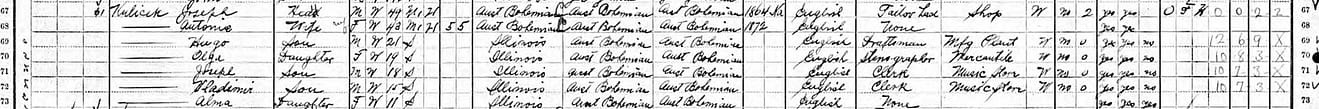 67 51 Kulicek Joseph Head M W 44 M1 21 Aust Bohemian Aust Bohemian Aust Bohemian 1864 Na English Tailor Shop W no 2 yes yes O F H 0 0 2 2 67
68 Antonie Wife F W 43 M1 21 5 5 Aust Bohemian Aust Bohemian Aust Bohemian 1872 English None yes yes 68
69 —— Hugo Son M W 21 S Illinois Aust Bohemian Aust Bohemian English Draftsman Mfg Plant W no 0 yes yes no 12 6 9 X 69
70 —— Olga Daughter F W 19 S Illinois Aust Bohemian Aust Bohemian English Stenographer Mercantile W no 0 yes yes no 10 8 3 X 70
71 —— Joseph Son M W 18 S Illinois Aust Bohemian Aust Bohemian English Clerk Music Store W no 0 yes yes no 10 7 3 X 71
72 —— Vladimir Son M W 15 S Illinois Aust Bohemian Aust Bohemian English Clerk Music Store W no 0 yes yes no 10 7 3 X 72
73 —— Alma Daughter F W 11 S Illinois Aust Bohemian Aust Bohemian English None yes yes yes 73